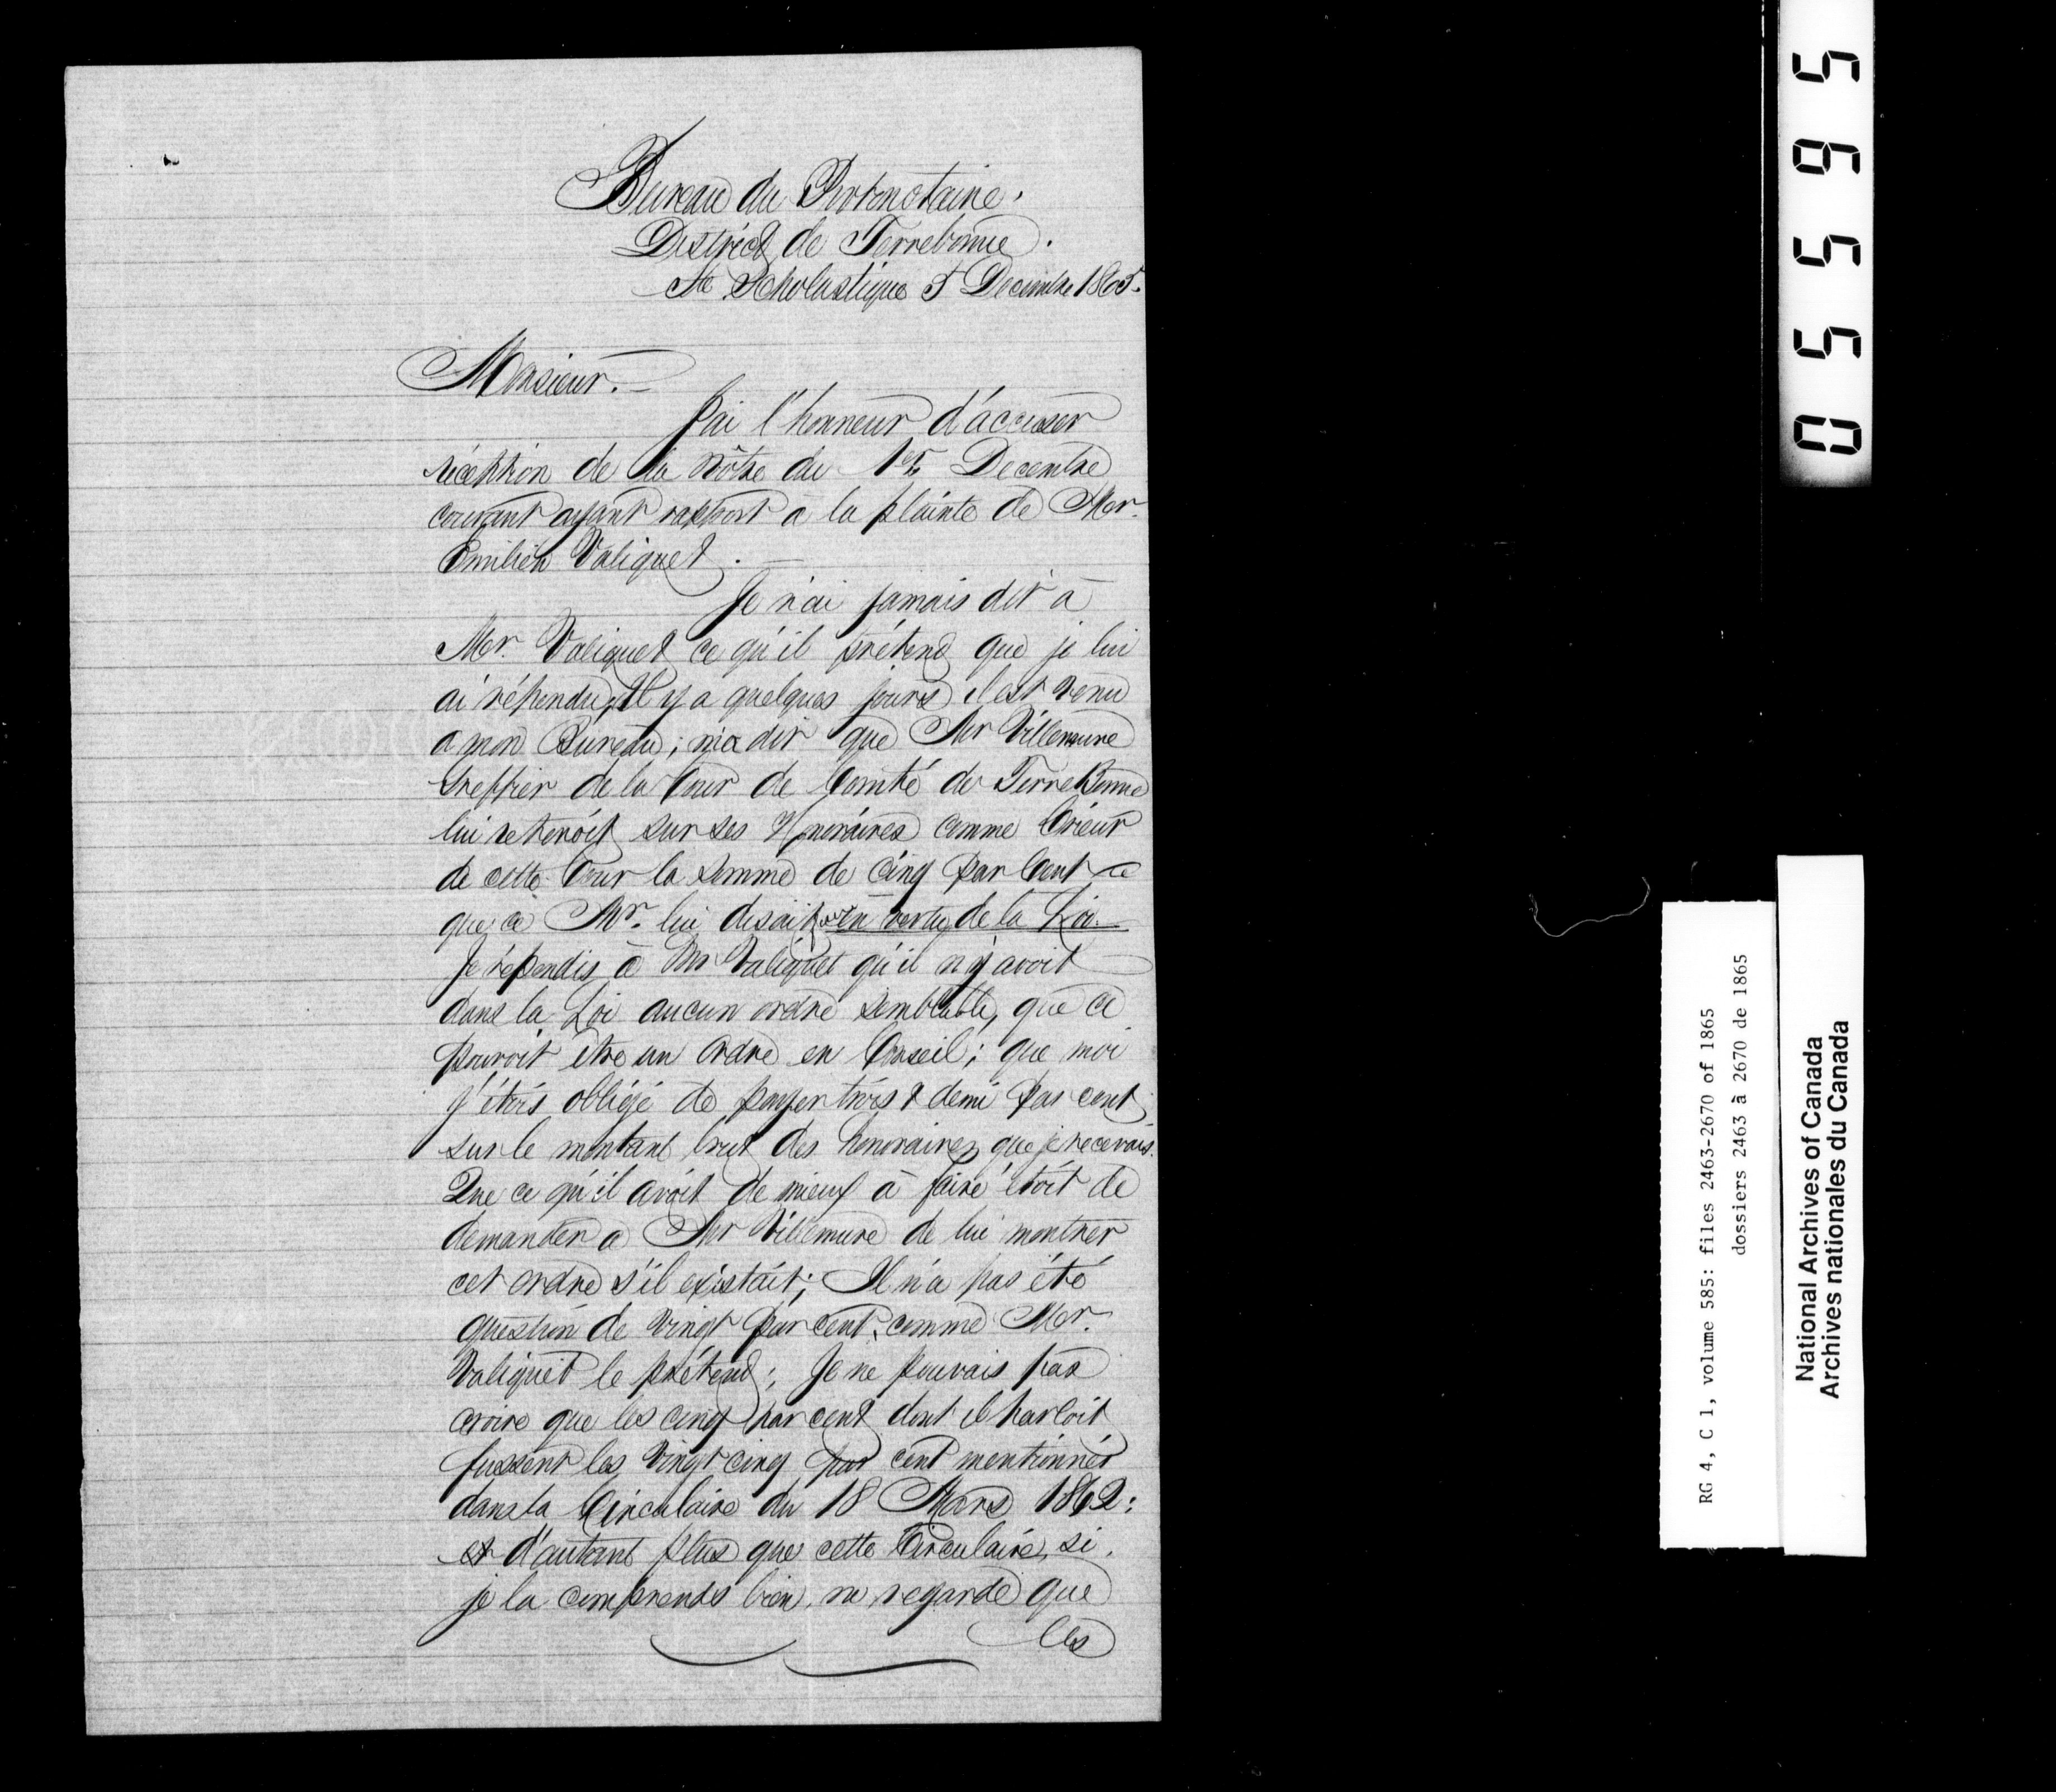 Bureau du Protonotaire.
District de Terrebonne.
Ste Scholastique 5 Decembre 1865.
Monsieur.
J'ai l'honneur d'accuser
réception de la vôtre du 1er Decembre
courant ayant rapport a la plainte de Mr.
Emilien Valiquet.
Je n'ai jamais dit à
Mr. Valiquet ce qu'il prétend que je lui
ai répondu, Il y a quelques jours il est venu
a mon Bureau; m'a dit que Mr Villemure
Greffier de la Cour de Comté de TerreBonne
lui retenoit sur ses Honoraires comme Crieur
de cette Cour la somme de cinq par Cent ce
que ce Mr. lui disait en vertu de la Loi.
Je répondis à Mr Valiquet qu'il n'y avoit
dans la Loi aucun ordre semblable, que ce
pouvoit être un Ordre en Conseil; que moi
j'étois obligé de payer trois & demi par cent
sur le montant brut des honoraires que je recevais.
Que ce qu'il avoit de mieux à faire étoit de
demander a Mr Villemure de lui montrer
cet ordre s'il existait; Il n'a pas été
question de vingt par cent, comme Mr.
Valiquet le prétend; Je ne pouvais pas
croire que les cinq par cent dont il parloit
fussent les vingt cinq par cent mentionnés
dans la Circulaire du 18 Mars 1862:
et d'autant plus que cette Circulaire, si
je la comprends bien, ne regarde que
les
05595
RG 4, C 1, volume 585: files 2463-2670 of 1865
dossiers 2463 à 2670 de 1865
National Archives of Canada
Archives nationales du Canada